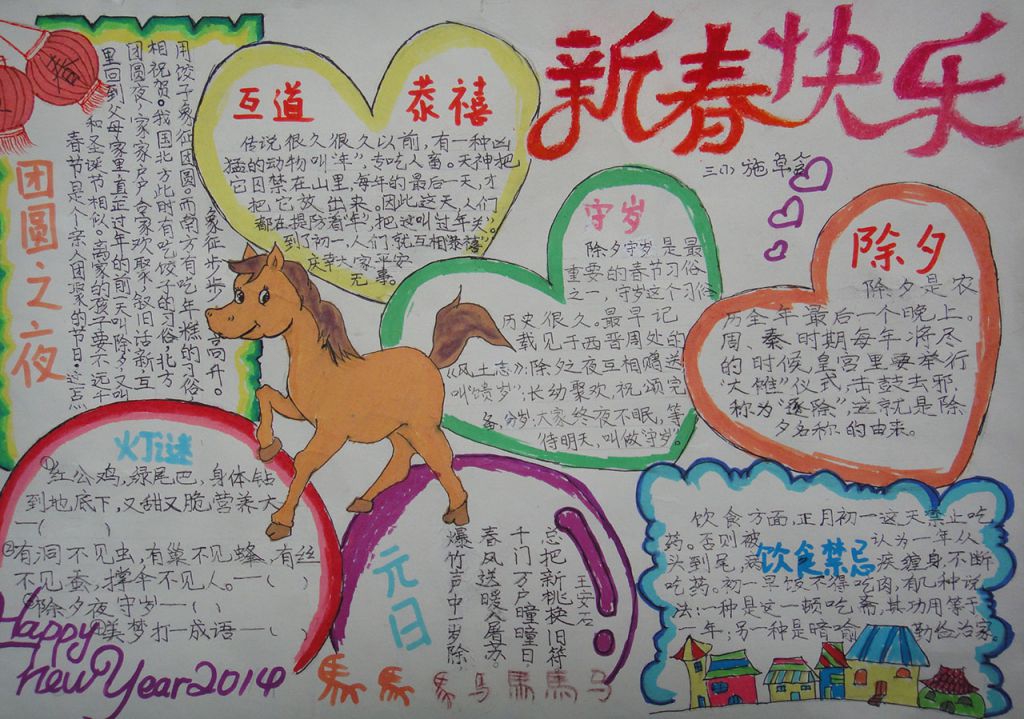 新春快乐
三小 施卓含
春
团圆之夜
春节是个亲人团聚的节日。这点
和圣诞节相似。离家的孩子要不远千
里回到父母家里。真正过年的前一天叫除夕。又叫
团圆夜,家家户户,合家欢聚,叙旧话新,互
相祝贺。我国北方此时有吃饺子的习俗,北方
用饺子象征团圆。而南方有吃年糕的习俗
象征步步
高升。
互道 恭禧
传说很久很久以前,有一种凶
猛的动物叫“年”,专吃人畜。天神把
它囚禁在山里,每年的最后一天,才
把它放出来。因此这天人们
都在提防着“年”,把这叫“过年关”。
到了初一,人们就互相“恭禧”
庆幸大家平安
无事。
守岁
除夕守岁是最
重要的春节习俗
之一,守岁这个习俗
历史很久。最早记
载见于西晋周处的
《风土志》:除夕之夜互相赠送
叫“馈岁”;长幼聚欢,祝颂完
备,分岁;大家终夜不眠,等
待明天,叫做“守岁”。
除夕
除夕是农
历全年最后一个晚上。
周、秦时期每年将尽
的时候,皇宫里要举行
“大傩”仪式,击鼓去邪,
称为“逐除”,这就是除
夕名称的由来。
灯谜
①红公鸡,绿尾巴,身体钻
到地底下,又甜又脆营养大
—( )
②有洞不见虫,有巢不见蜂,有丝
不见蚕,撑伞不见人。—( )
③除夕夜守岁—( )
④美梦打一成语—( )
Happy
New Year 2014
元日
王安石
爆竹声中一岁除,
春风送暖入屠苏。
千门万户曈曈日,
总把新桃换旧符
馬
马
馬
馬
马
饮食禁忌
饮食方面,正月初一这天禁止吃
药。否则被认为一年从
头到尾,疾缠身,不断
吃药。初一早饭不得吃肉,有几种说
法:一种是这一顿吃斋,其功用等于
一年;另一种是暗喻勤俭治家。